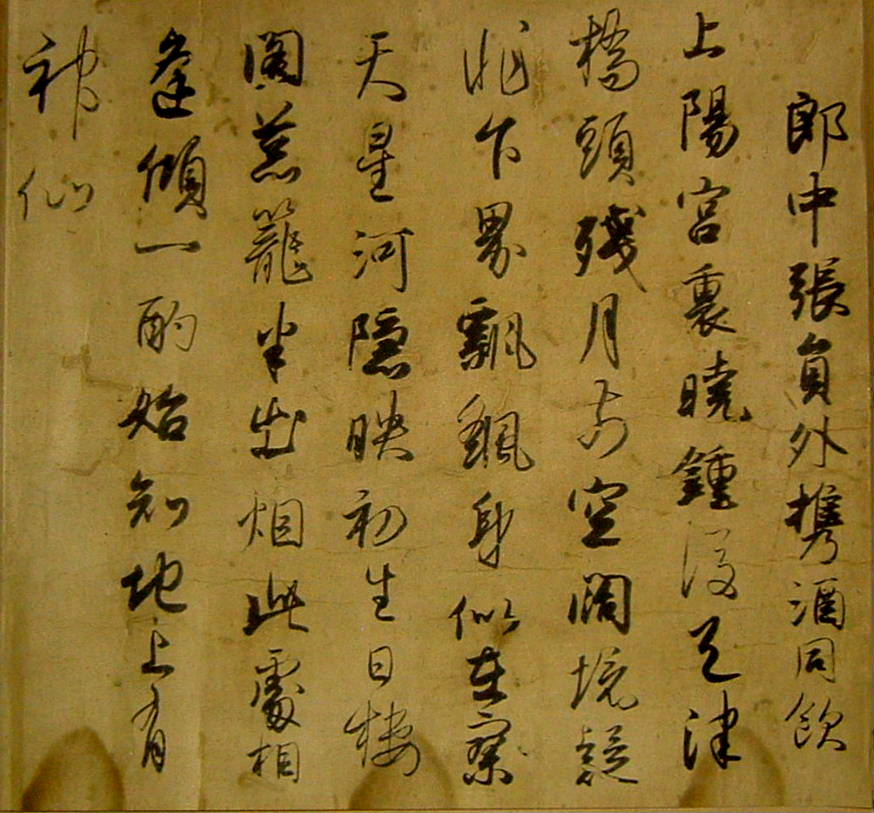 郎中張員外攜酒同飲
上陽宮裏曉鍾後天津
橋頭殘月前空闊境疑
非下界飄飄身似在寥
天星河隱映初生日樓
閣葱籠半出烟此處相
逢傾一酌始知地上有
神仙